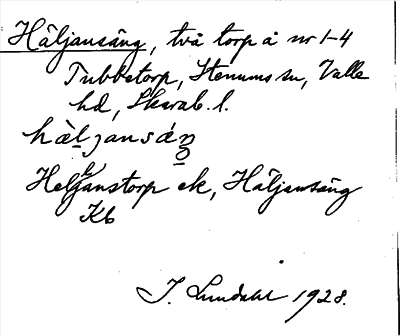 Häljansäng, två torp å nr 1-4
Tubbetorp, Stenums sn, Valle
hd, Skarab. l.
hàljansáŋ
Heljanstorp ek, Häljansäng
Kb
I. Lundahl 1928.